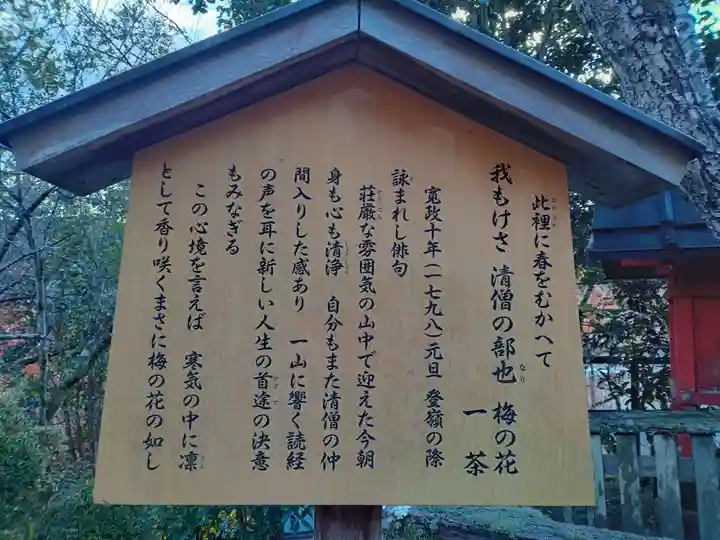 此裡に春をむかへて
我もけさ 清僧の部也 梅の花
一茶
寛政十年（一七九八）元旦 登嶺の際
詠まれし俳句
荘厳な雰囲気の山中で迎えた今朝
身も心も清浄 自分もまた清僧の仲
間入りした感あり 一山に響く読経
の声を耳に新しい人生の首途の決意
もみなぎる
この心境を言えば 寒気の中に凛
として香り咲くまさに梅の花の如し